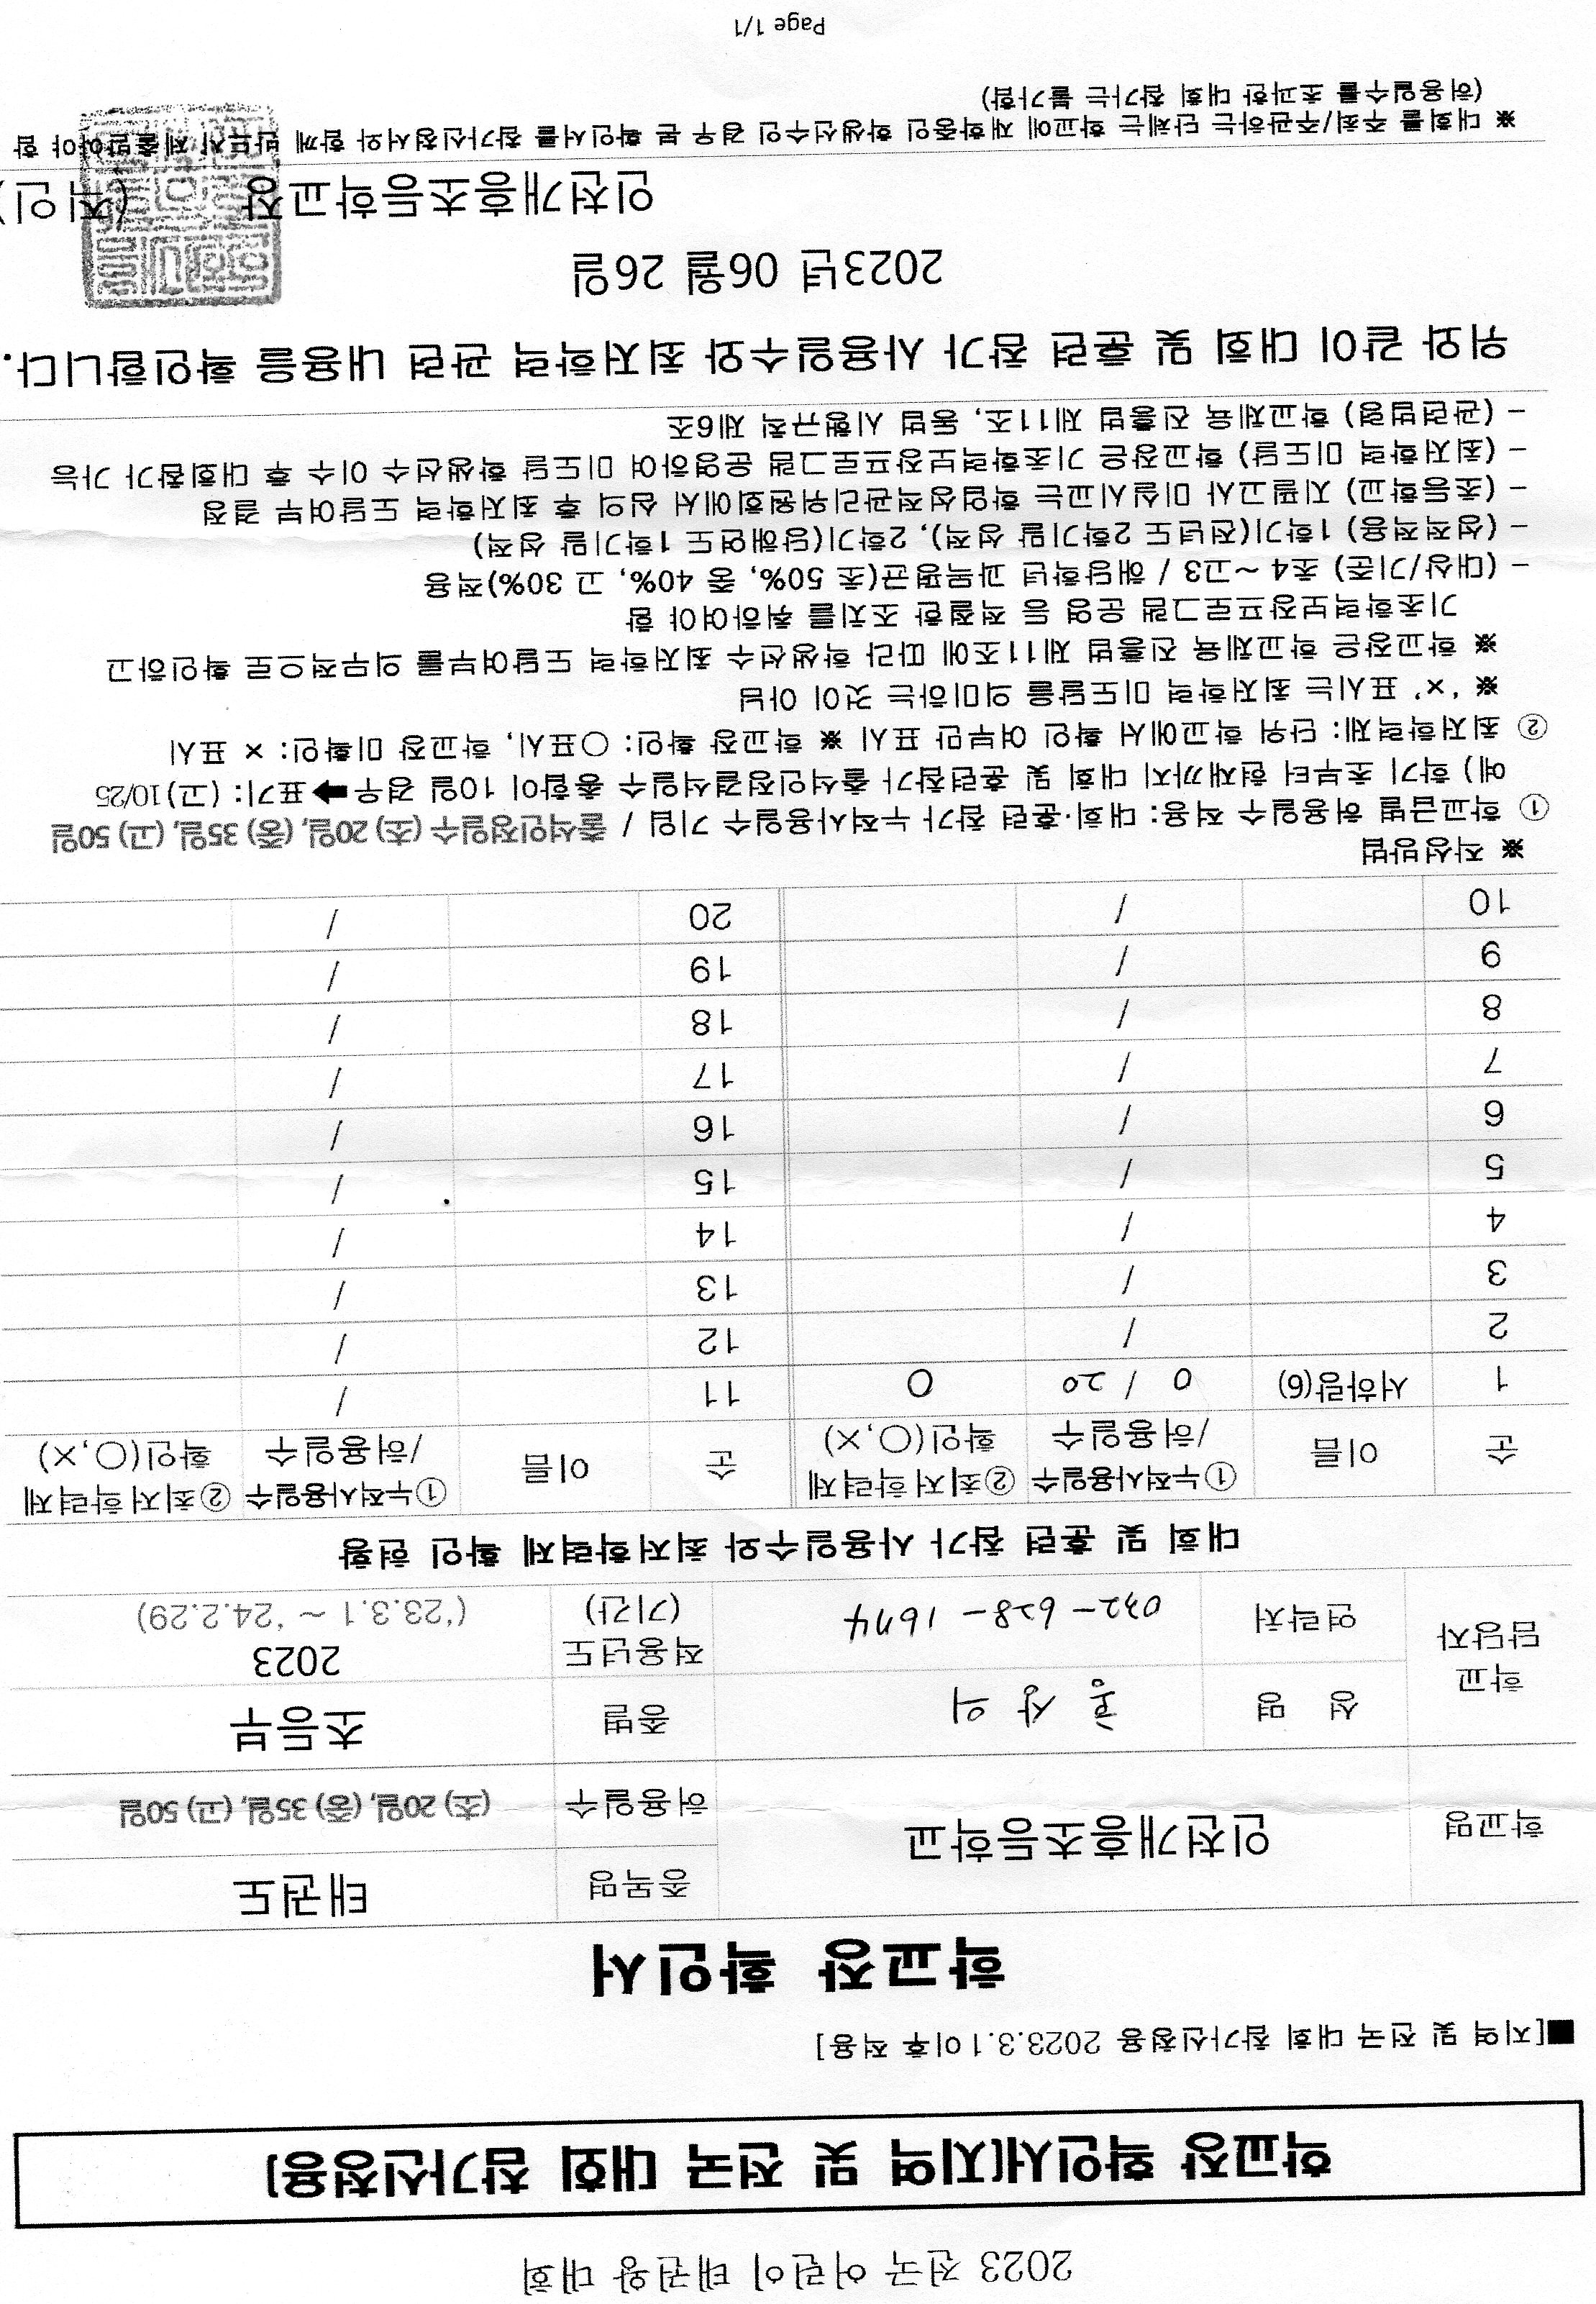 2023 전국 어린이 태권왕 대회
학교장 확인서[지역 및 전국 대회 참가신청용]
■[지역 및 전국 대회 참가신청용 2023.3.1이후 적용]
학교장 확인서
학교명 인천개흥초등학교 종목명 태권도
허용일수 (초) 20일, (중) 35일, (고) 50일
학교 담당자 성 명 홍상의 종별 초등부
연락처 032-628-1674 적용년도 (기간) 2023 ('23.3.1 ~ '24.2.29)
대회 및 훈련 참가 사용일수와 최저학력제 확인 현황
순 이름 ①누적사용일수 /허용일수 ②최저학력제 확인(○,×) 순 이름 ①누적사용일수 /허용일수 ②최저학력제 확인(○,×)
1 서하랑(6) 0 / 20 O 11 /
2 / 12 /
3 / 13 /
4 / 14 /
5 / 15 /
6 / 16 /
7 / 17 /
8 / 18 /
9 / 19 /
10 / 20 /
※ 작성방법
① 학교급별 허용일수 적용: 대회·훈련 참가 누적사용일수 기입 / 출석인정일수 (초) 20일, (중) 35일, (고) 50일
예) 학기 초부터 현재까지 대회 및 훈련참가 출석인정결석일수 총합이 10일 경우 ➡표기: (고)10/25
② 최저학력제: 단위 학교에서 확인 여부만 표시 ※ 학교장 확인: ○표시, 학교장 미확인: × 표시
※ '×' 표시는 최저학력 미도달을 의미하는 것이 아님
※ 학교장은 학교체육 진흥법 제11조에 따라 학생선수 최저학력 도달여부를 의무적으로 확인하고
기초학력보장프로그램 운영 등 적절한 조치를 취하여야 함
- (대상/기준) 초4 ~고3 / 해당학년 과목평균(초 50%, 중 40%, 고 30%)적용
- (성적적용) 1학기(전년도 2학기말 성적), 2학기(당해연도 1학기말 성적)
- (초등학교) 지필고사 미실시교는 학업성적관리위원회에서 심의 후 최저학력 도달여부 결정
- (최저학력 미도달) 학교장은 기초학력보장프로그램 운영하여 미도달 학생선수 이수 후 대회참가 가능
- (관련법령) 학교체육 진흥법 제11조, 동법 시행규칙 제6조
위와 같이 대회 및 훈련 참가 사용일수와 최저학력 관련 내용을 확인합니다.
2023년 06월 26일
인천개흥초등학교장 (직인)
※ 대회를 주최/주관하는 단체는 학교에 재학중인 학생선수인 경우 본 확인서를 참가신청서와 함께 반드시 제출받아야 함
(허용일수를 초과한 대회 참가는 불가함)
Page 1/1